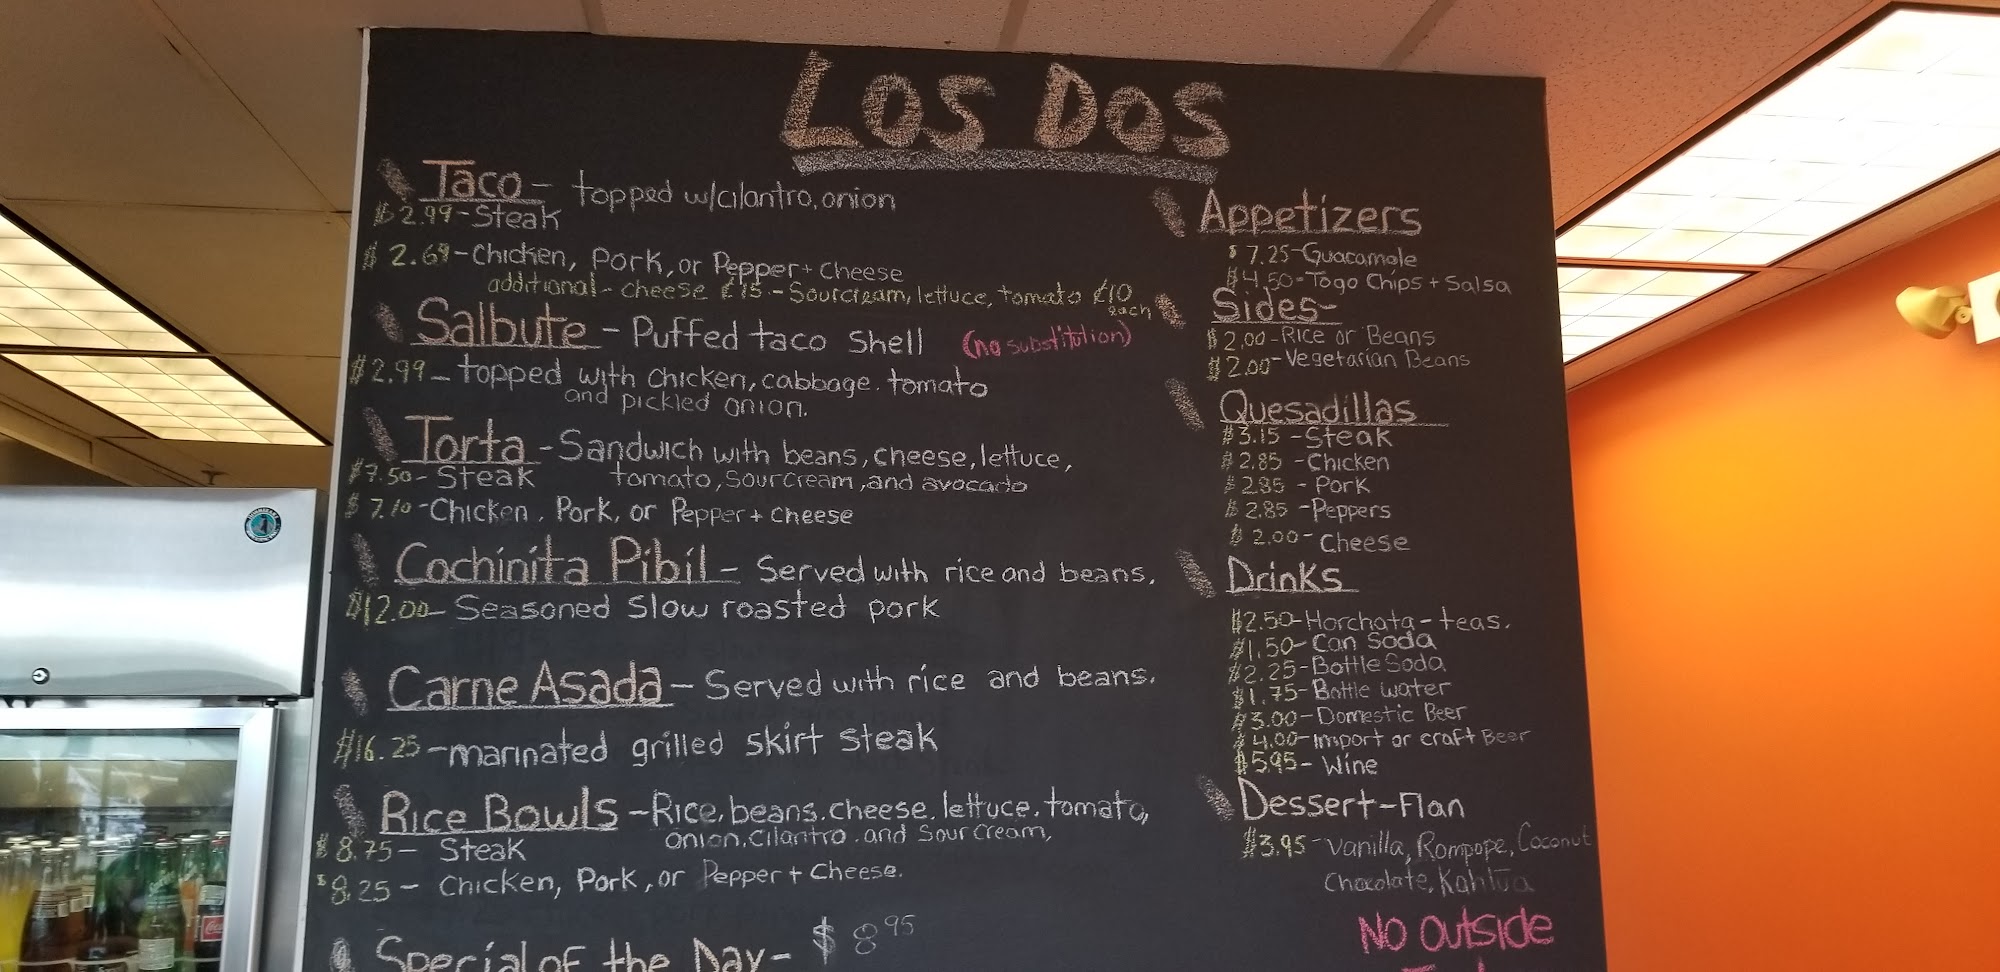 Los Dos
Taco - topped w/cilantro, onion
$2.99 - Steak
$2.69 - Chicken, Pork, or Pepper + Cheese
additional - cheese ¢15 - Sourcream, lettuce, tomato ¢10
each
Salbute - Puffed taco Shell (no substitution)
$2.99 - topped with Chicken, cabbage. tomato
and pickled onion.
Torta - Sandwich with beans, cheese, lettuce,
$7.50 - Steak tomato, Sourcream, and avocado
$7.10 - Chicken, Pork, or Pepper + cheese
Cochinita Pibil - Served with rice and beans.
$12.00 - Seasoned Slow roasted pork
Carne Asada - Served with rice and beans.
$16.25 - marinated grilled skirt steak
Rice Bowls - Rice, beans, cheese, lettuce, tomato,
onion, cilantro, and Sour cream,
$8.75 - Steak
$8.25 - Chicken, Pork, or Pepper + Cheese.
Special of the Day - $8.95
Appetizers
$7.25 - Guacamole
$4.50 - Togo Chips + Salsa
Sides -
$2.00 - Rice or Beans
$2.00 - Vegetarian Beans
Quesadillas
$3.15 - Steak
$2.85 - Chicken
$2.85 - Pork
$2.85 - Peppers
$2.00 - Cheese
Drinks
$2.50 - Horchata - teas.
$1.50 - Can Soda
$2.25 - Bottle Soda
$1.75 - Bottle water
$3.00 - Domestic Beer
$4.00 - Import or craft Beer
$5.95 - Wine
Dessert - Flan
$3.95 - Vanilla, Rompope, Coconut
Chocolate, Kahlūa
NO Outside